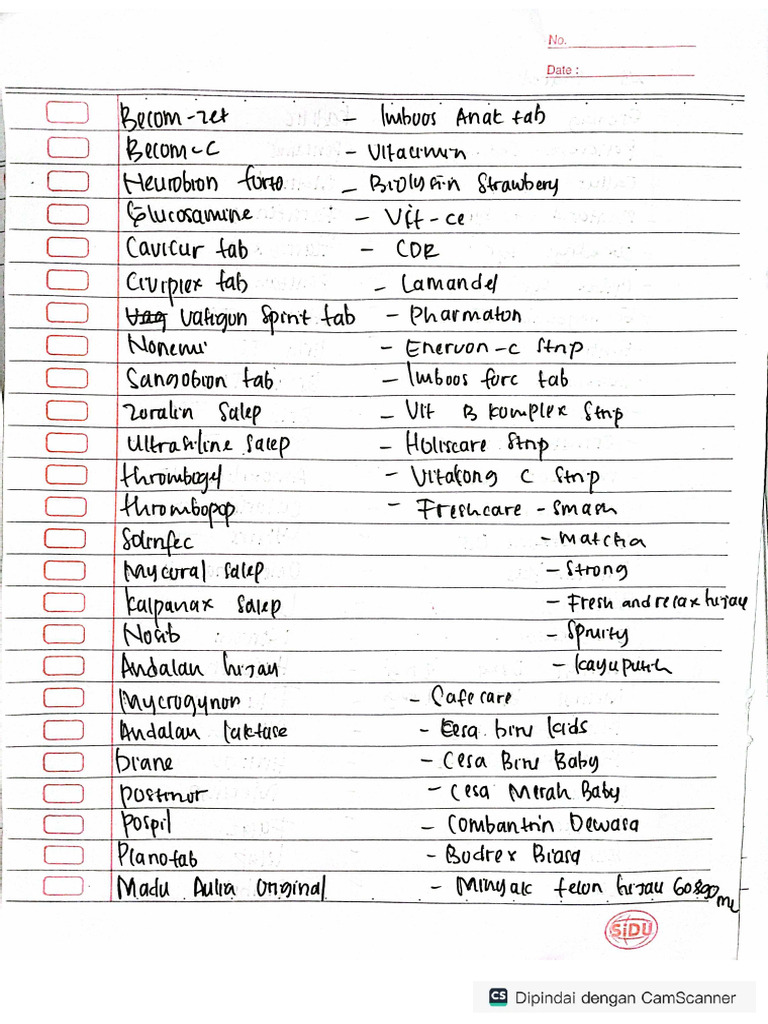 No.
Date :
Becom-zet - Imboos Anak tab
Becom-C - Vitacimin
Neurobion forte - Biolysin Strawbery
Glucosamine - Vit-ce
Cavicur tab - CDR
Civiplex tab - Lamandel
Vatigon Spirit tab - Pharmaton
Nonemi - Enervon-c Strip
Sangobion tab - Imboos forc tab
Zoralin Salep - Vit B Komplex Strip
Ultrasiline Salep - Holiscare Strip
thrombogel - Vitalong C Strip
thrombopop - Freshcare - Smash
Solinfec - matcha
Mycoral salep - Strong
Kalpanax salep - Fresh and relax hijau
Nosib - Spruity
Andalan hijau - Kayu putih
Mycrogynon - Cafe care
Andalan laktase - Cesa biru kids
Diane - Cesa Biru Baby
Postinor - Cesa Merah Baby
Pospil - Combantrin Dewasa
Planotab - Bodrex Biasa
Madu Aulia Original - Minyak telon hijau ml
SiDU
CS Dipindai dengan CamScanner